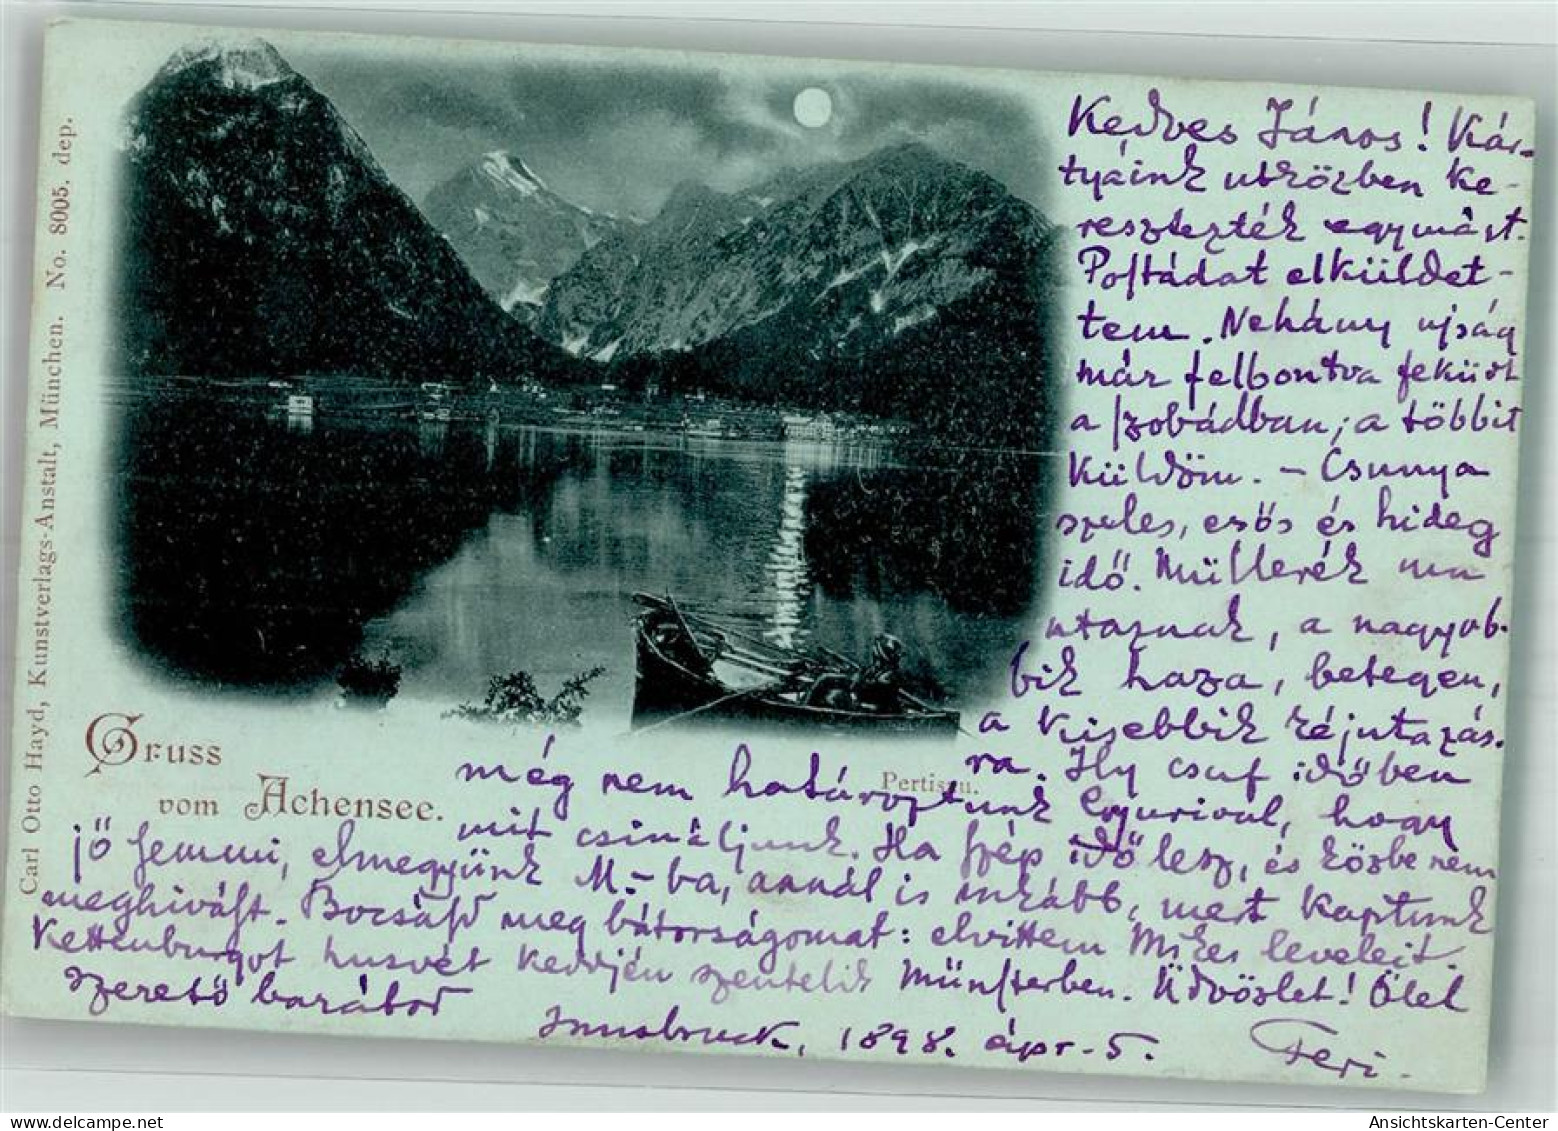 Carl Otto Hayd, Kunstverlags-Anstalt, München. No. 8005. dep.
Kedves János! Kár-
tyáink útközben ke-
resztezték egymást.
Postádat elküldet-
tem. Néhány ujság
már felbontva feküdt
a szobádban, a többit
küldöm. - Csunya
szeles, esős és hideg
idő. Müllerék ma
utaznak, a nagyob-
bik haza, betegen,
a kisebbik
ra. Ily csuf időben
még nem határoztunk hogy
mit csináljunk. Ha szép idő lesz, és közbe nem
jő semmi, elmegyünk M.-ba, annál is inkább, mert kaptunk
meghivást. Bocsásd meg bátorságomat: elvittem Mikes leveleit.
Kettenburgot husvét keddjén szentelik Münsterben. Üdvözlet! Ölel
szerető barátod
Innsbruck, 1898. ápr. 5. Feri.
Gruss
vom Achensee.
Pertisau.
Ansichtskarten-Center
oldthing.de